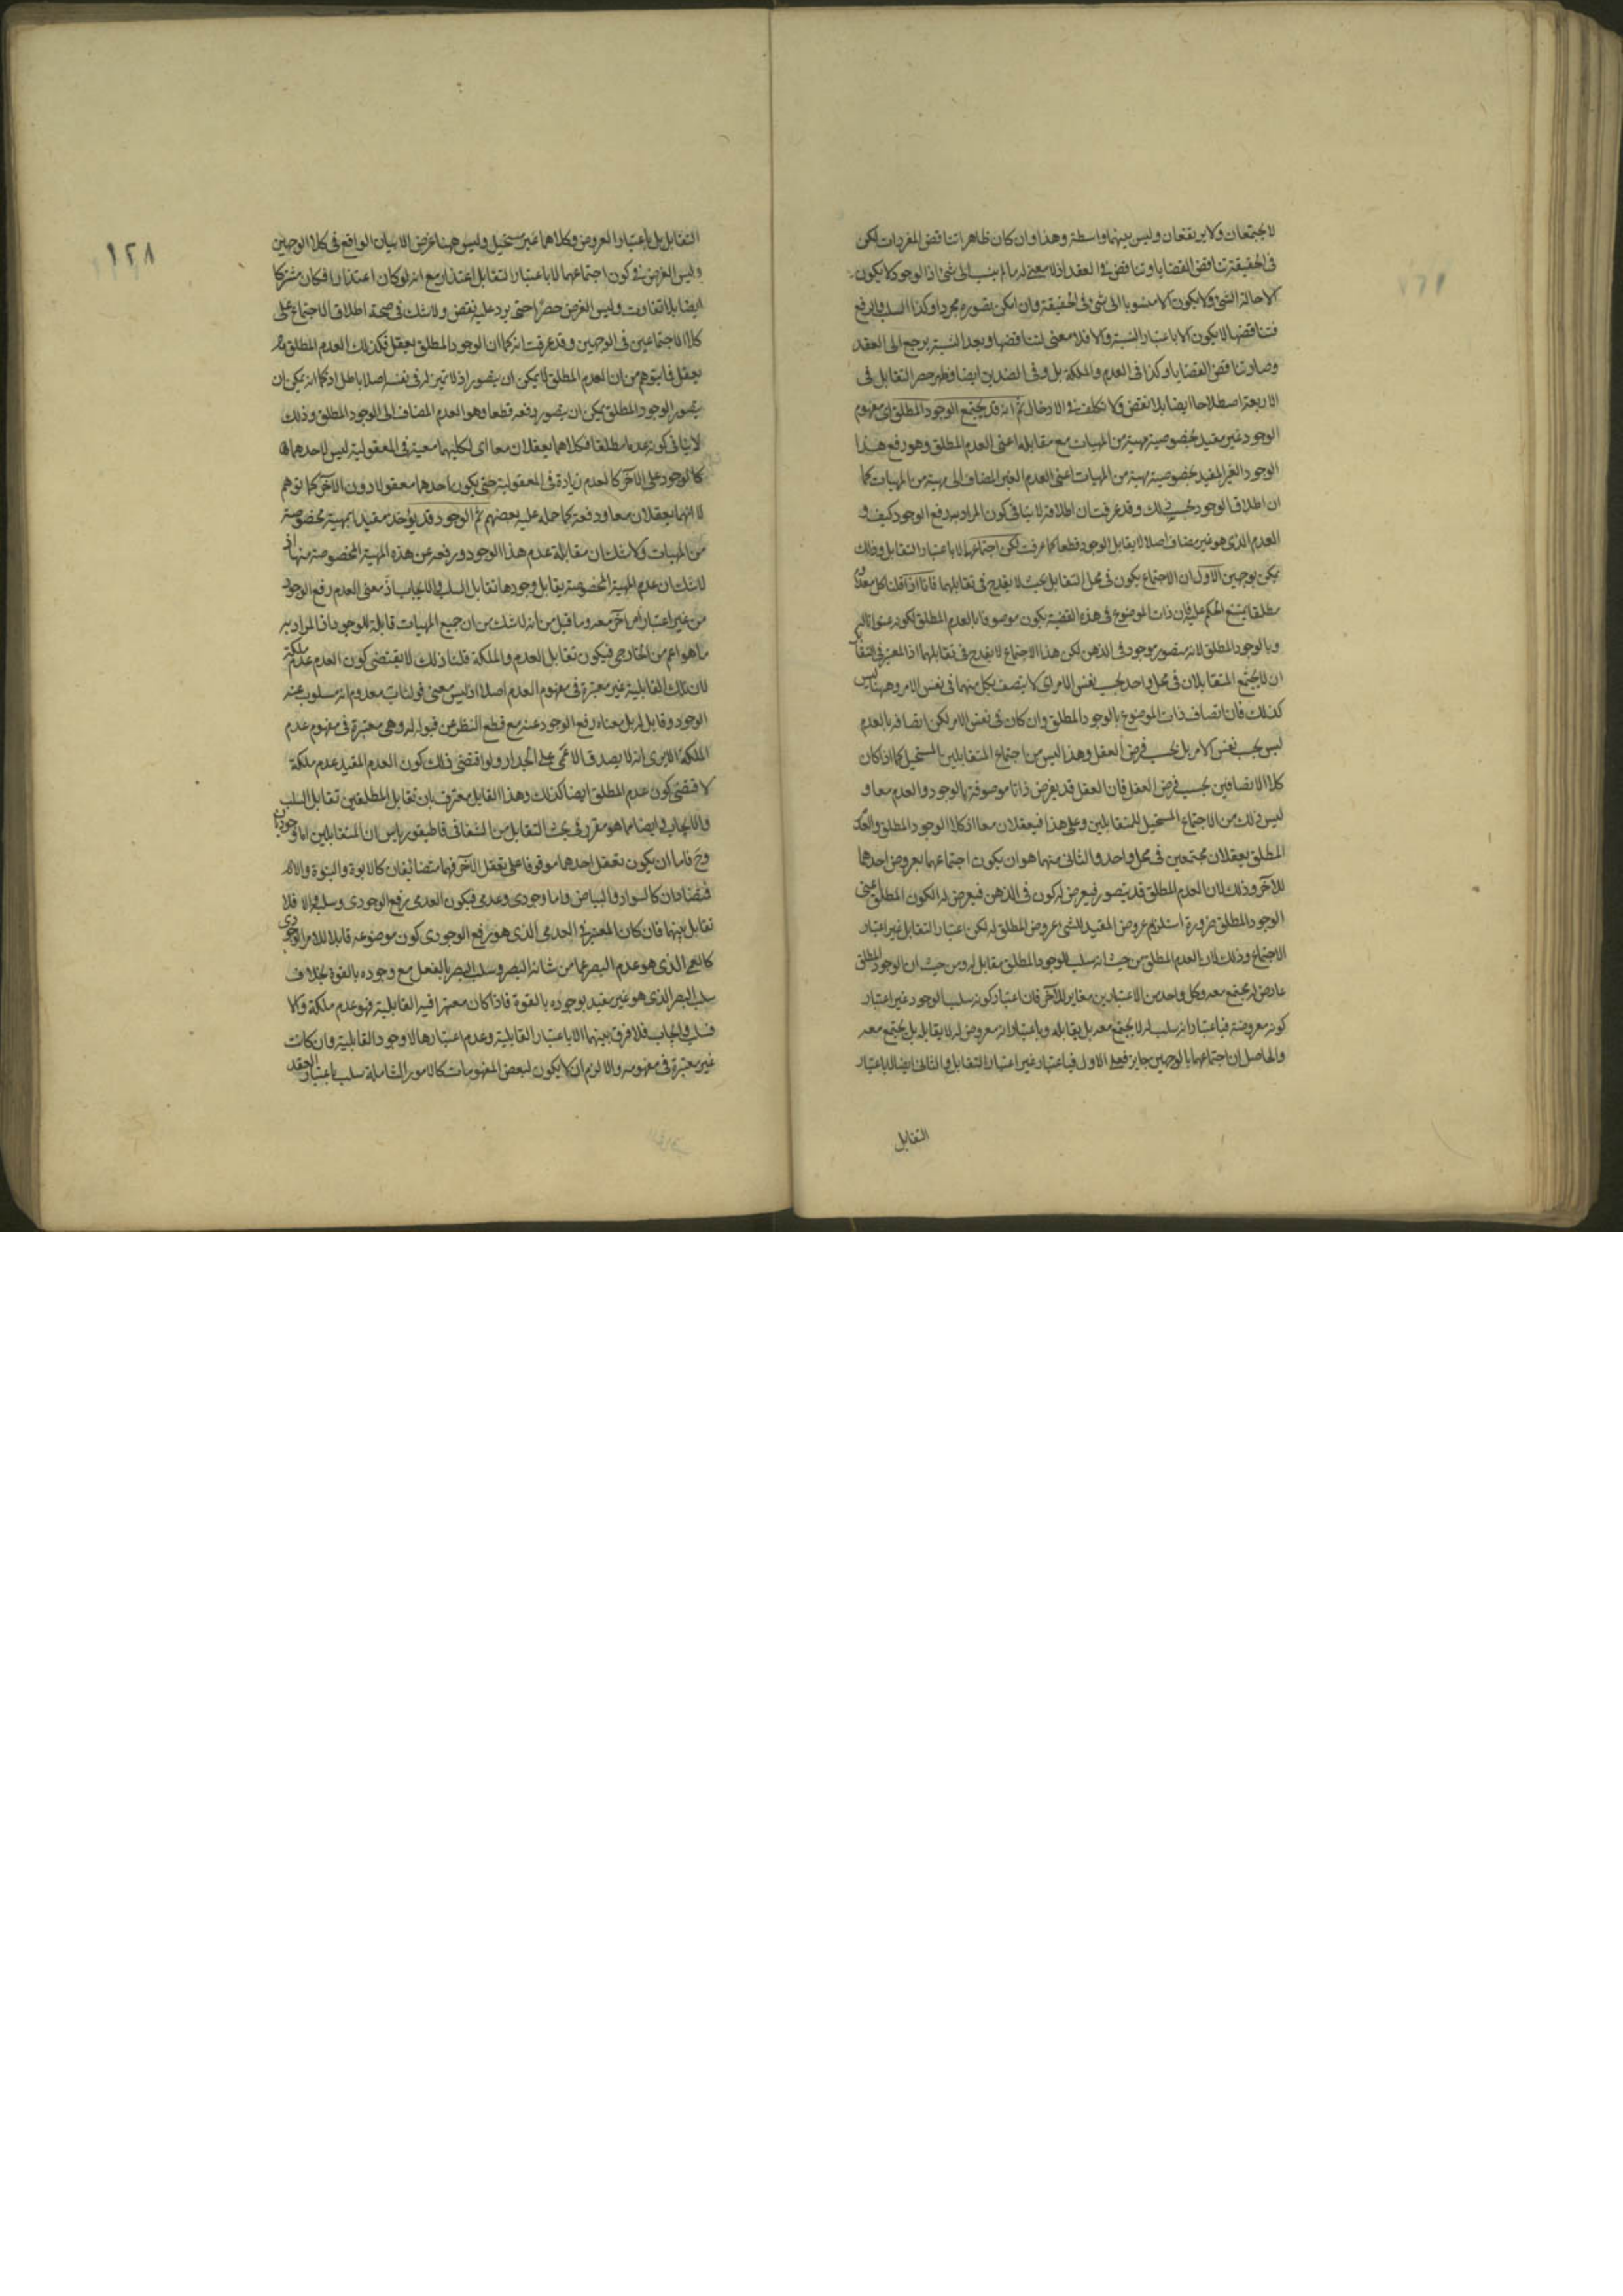 لا يجتمعان ولا يرتفعان وليس بينهما واسطة وهذا وان كان ظاهرا تناقض المفردات لكن
فى الحقيقة تناقض القضايا وتناقض فى العقد اذ لا معنى له ما لم ينسب الى شئ اذ الوجود لا يكون
الا حالة الشئ ولا يكون الا منسوبا الى شئ فى الحقيقة وان امكن تصوره مجردا وكذا السلب والرفع
فتناقضها لا يكون الا باعتبار النسبة والا فلا معنى لتناقضها وبعد النسبة يرجع الى العقد
وصار تناقض القضايا وكذا فى العدم والملكة بل وفى الضدين ايضا وظهر حصر التقابل فى
الاربعة اصطلاحا ايضا بلا نقض ولا تكلف فى الادخال ثم انه قد يجتمع الوجود المطلق اى مفهوم
الوجود غير مقيد بخصوصية مهية من المهيات مع مقابله اعنى العدم المطلق وهو رفع هذا
الوجود الغير المقيد بخصوصية مهية من المهيات اعنى العدم الغير المضاف الى مهية من المهيات كما
ان اطلاق الوجود بحسب ذلك وقد عرفت ان اطلاقه لا ينافى كون المراد به رفع الوجود كيف و
العدم الذى هو غير مضاف اصلا لا يقابل الوجود قطعا كما عرفت لكن اجتماعهما لا باعتبار التقابل وذلك
يمكن بوجهين الاول ان الاجتماع يكون فى محل التقابل بحيث لا يقدح فى تقابلهما فانا اذا قلنا كل معدوم
مطلقا يمتنع الحكم عليه فان ذات الموضوع فى هذه القضية يكون موصوفا بالعدم المطلق لكونه عنوانا له
وبالوجود المطلق لانه متصور موجود فى الذهن لكن هذا الاجتماع لا يقدح فى تقابلهما اذ المعتبر فى التقابل
ان لا يجتمع المتقابلان فى محل واحد بحسب نفس الامر اى لا يتصف بكل منهما فى نفس الامر وههنا ليس
كذلك فان اتصاف ذات الموضوع بالوجود المطلق وان كان فى نفس الامر لكن اتصافه بالعدم
ليس بحسب نفس الامر بل بحسب فرض العقل وهذا ليس من اجتماع المتقابلين المستحيل كما اذا كان
كلا الاتصافين بحسب فرض العقل فان العقل قد يفرض ذاتا موصوفة بالوجود والعدم معا و
ليس ذلك من الاجتماع المستحيل للمتقابلين وعلى هذا فيعقلان معا اذ كلا الوجود المطلق والعدم
المطلق يعقلان مجتمعين فى محل واحد والثانى منهما هو ان يكون اجتماعهما بعروض احدهما
للآخر وذلك لان العدم المطلق قد يتصور فيعرض له كون فى الذهن فيعرض له الكون المطلق اعنى
الوجود المطلق ضرورة استلزام عروض المقيد للشئ عروض المطلق له لكن اعتبار التقابل غير اعتبار
الاجتماع وذلك لان العدم المطلق من حيث انه سلب الوجود المطلق مقابل له ومن حيث ان الوجود المطلق
عارض له مجتمع معه وكل واحد من الاعتبارين مغاير للآخر فان اعتبار كونه سلب الوجود غير اعتبار
كونه معروضه فباعتبار انه سلب له لا يجتمع معه بل يقابله وباعتبار انه معروض له لا يقابله بل يجتمع معه
والحاصل ان اجتماعهما بالوجهين جايز فعلى الاول فباعتبار غير اعتبار التقابل والثانى ايضا لا باعتبار
التقابل
١٢٨
التقابل بل باعتبار العروض وكلاهما غير مستحيل وليس ههنا غرض الا بيان الواقع فى كلا الوجهين
وليس الغرض فى كون اجتماعهما لا باعتبار التقابل اعتذار مع انه لو كان اعتذارا فكان مشتركا
ايضا بلا تفاوت وليس الغرض حصرا حتى يرد عليه نقض ولا شك فى صحة اطلاق الاجتماع على
كلا الاجتماعين فى الوجهين وقد عرفت انه كما ان الوجود المطلق يعقل فكذلك العدم المطلق
يعقل فما يتوهم من ان العدم المطلق لا يمكن ان يتصور اذ لا تميز له فى نفسه اصلا باطل اذ كما انه يمكن ان
يتصور الوجود المطلق يمكن ان يتصور رفعه قطعا وهو العدم المضاف الى الوجود المطلق وذلك
لا ينافى كونه عدما مطلقا فكلاهما يعقلان معا اى لكليهما معية فى المعقولية ليس لاحدهما
كالوجود على الآخر كالعدم زيادة فى المعقولية حتى يكون احدهما معقولا دون الآخر كما توهم
لا انهما يعقلان معا ودفعة كما حمله عليه بعضهم ثم الوجود قد يؤخذ مقيدا بمهية مخصوصة
من المهيات ولا شك ان مقابله عدم هذا الوجود ورفعه عن هذه المهية المخصوصة منها اذ
لا شك ان عدم المهية المخصوصة يقابل وجودها تقابل السلب والايجاب اذ معنى العدم رفع الوجود
من غير اعتبار امر آخر معه وما قيل من انه لا شك من ان جميع المهيات قابلة للوجود اذ المراد به
ما هو اعم من الخارجى فيكون تقابل العدم والملكة قلنا ذلك لا يقتضى كون العدم عدم ملكة
لان تلك القابلية غير معتبرة فى مفهوم العدم اصلا اذ ليس معنى قولنا ب معدوم انه مسلوب عنه
الوجود وقابل له بل معناه رفع الوجود عنه مع قطع النظر عن قبوله له وهى معتبرة فى مفهوم عدم
الملكة الا يرى انه لا يصدق الاعمى على الجدار ولو اقتضى ذلك كون العدم المقيد عدم ملكة
لاقتضى كون عدم المطلق ايضا كذلك وهذا القايل معترف بان تقابل المطلقين تقابل السلب
والايجاب وايضا ما هو مقرر فى بحث التقابل من الشفا فى قاطيغورياس ان المتقابلين اما وجوديان
وح فاما ان يكون تعقل احدهما موقوفا على تعقل الآخر فهما متضايفان كالابوة والبنوة والا
فمتضادان كالسواد والبياض واما وجودى وعدمى فيكون العدمى رفع الوجودى وسلبه والا فلا
تقابل بينهما فان كان المعتبر فى العدمى الذى هو رفع الوجودى كون موضوعه قابلا للامر الوجودى
كالعمى الذى هو عدم البصر عما من شانه البصر وسلب البصر بالفعل مع وجوده بالقوة بخلاف
سلب البصر الذى هو غير مقيد بوجوده بالقوة فاذا كان معتبرا فيه القابلية فهو عدم ملكة والا
فسلب وايجاب فلا فرق بينهما الا باعتبار القابلية وعدم اعتبارها لا وجود القابلية وان كانت
غير معتبرة فى مفهومه والا لزم ان لا يكون لبعض المفهومات كالامور الشاملة سلب باعتبار العقد